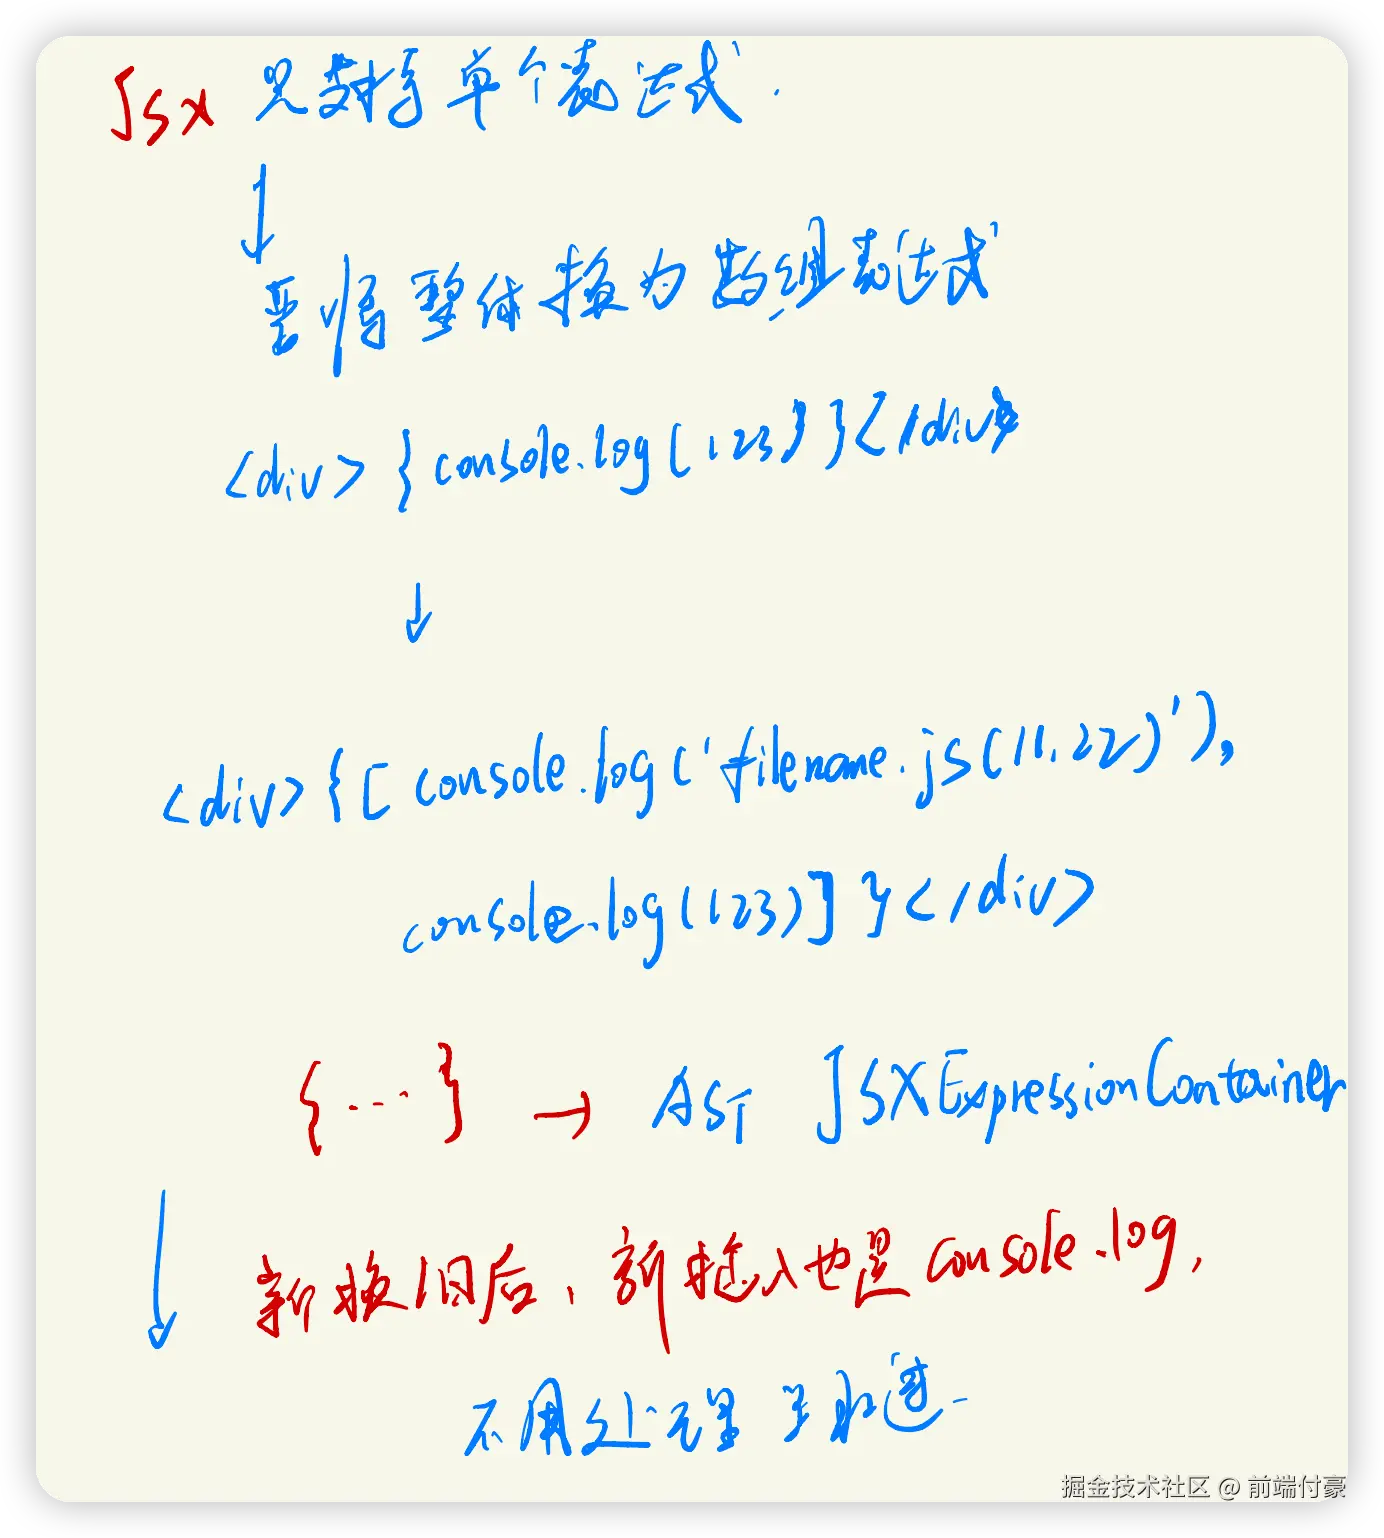 JSX 只支持单个表达式.
要将整体换为数组表达式
<div>{console.log(123)}</div>
<div>{[console.log('filename.js(11,22)'),
console.log(123)]}</div>
{...} → AST JSXExpressionContainer
新换旧后,新插入也是console.log,
不用处理 跳过
掘金技术社区 @ 前端付豪